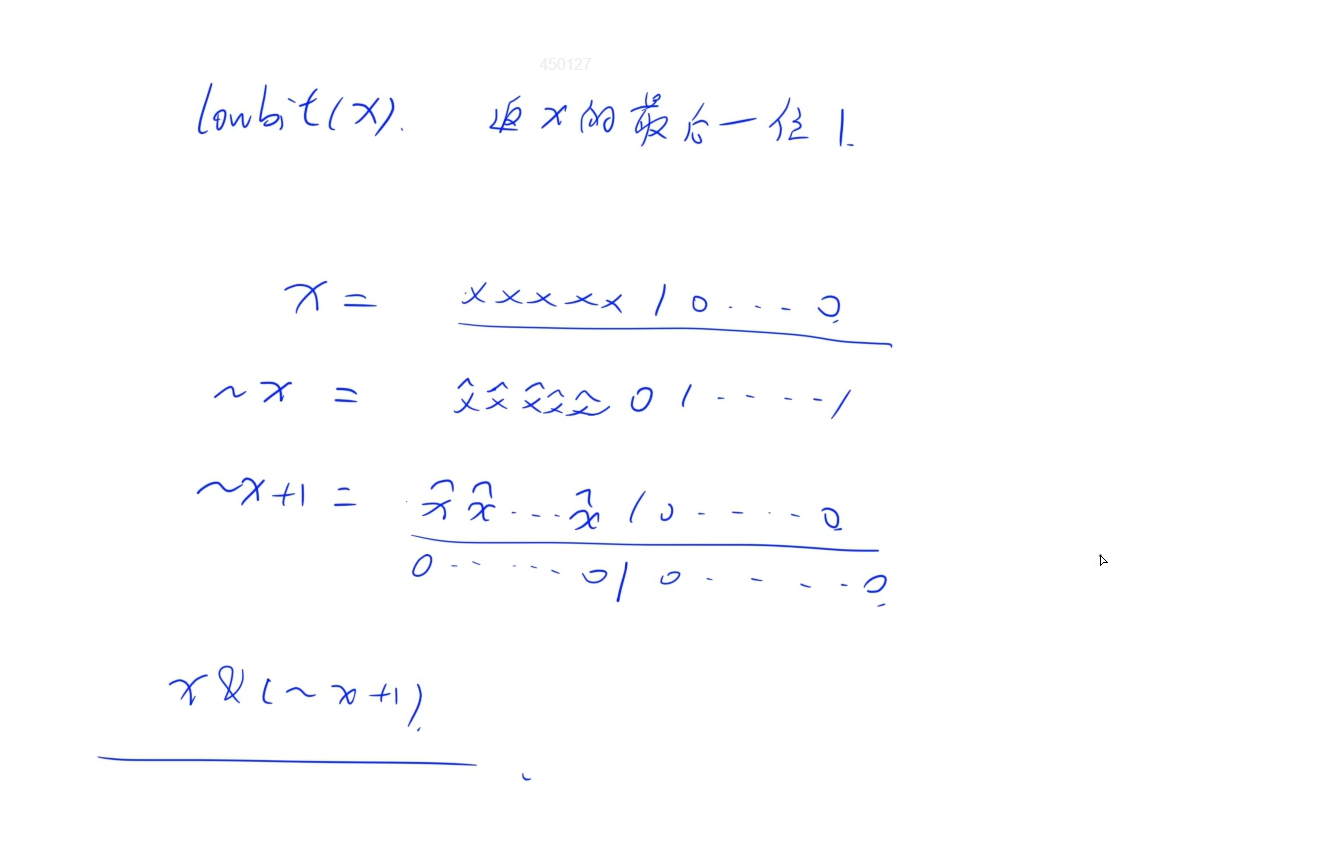 450127
lowbit(x). 返x的最后一位1.
x = xxxxx10...0
~x = x̂x̂x̂x̂x̂01....1
~x+1 = x̂x̂...x̂10....0
0.....010....0
x&(~x+1)